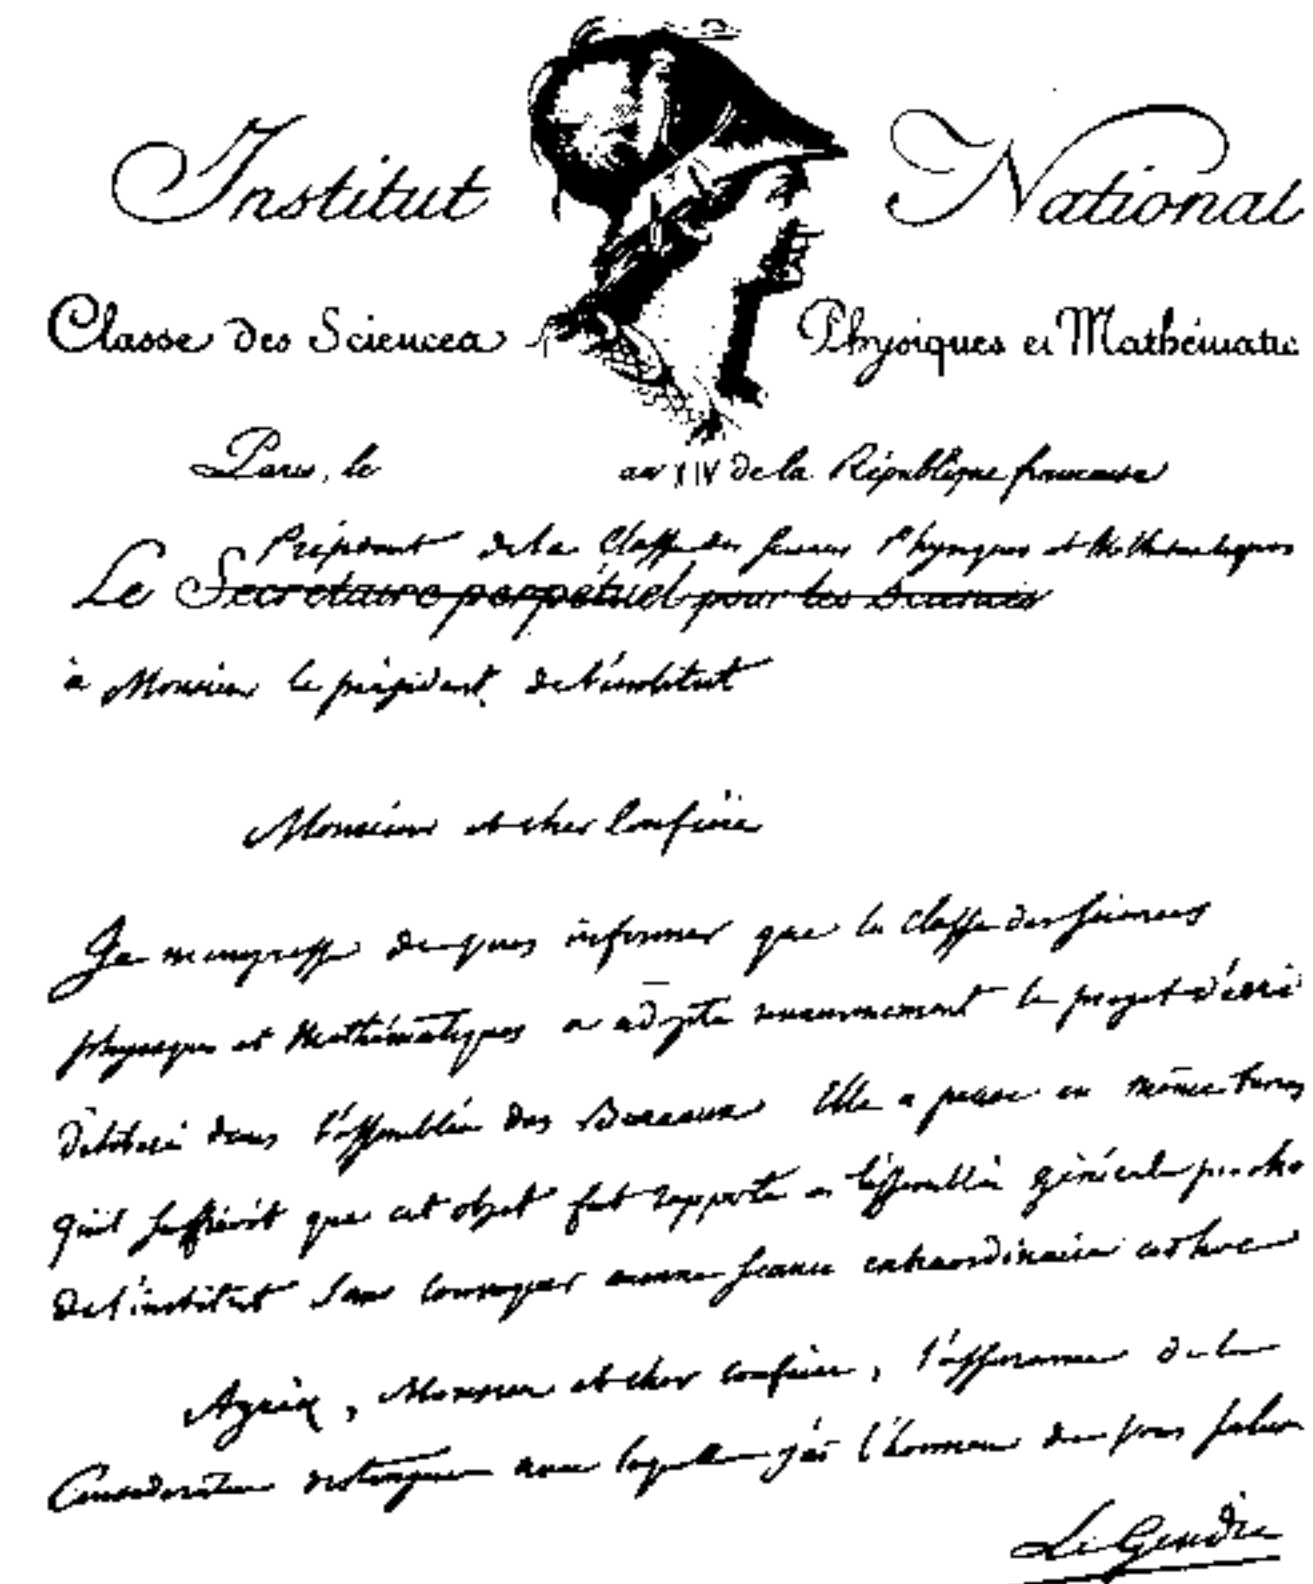 Institut National
Classe des Sciences Physiques et Mathématic
Paris, le an XIV de la République française
Président de la Classe des Sciences Physiques et Mathématiques
Le Secrétaire perpétuel pour les Sciences
à Monsieur le président de l'institut
Monsieur et cher Confrère
Je m'empresse de vous informer que la Classe des Sciences
physiques et Mathématiques a adopté unanimement le projet d'
délibéré dans l'assemblée des Bureaux Elle a pensé en même tems
qu'il suffiroit que cet objet fut rapporté a l'assemblée générale
de l'institut sans convoquer aucune séance extraordinaire ad hoc
Agréez, Monsieur et cher confrère, l'assurance de la
Considération distinguée avec laquelle j'ai l'honneur de vous saluer
Le Gendre